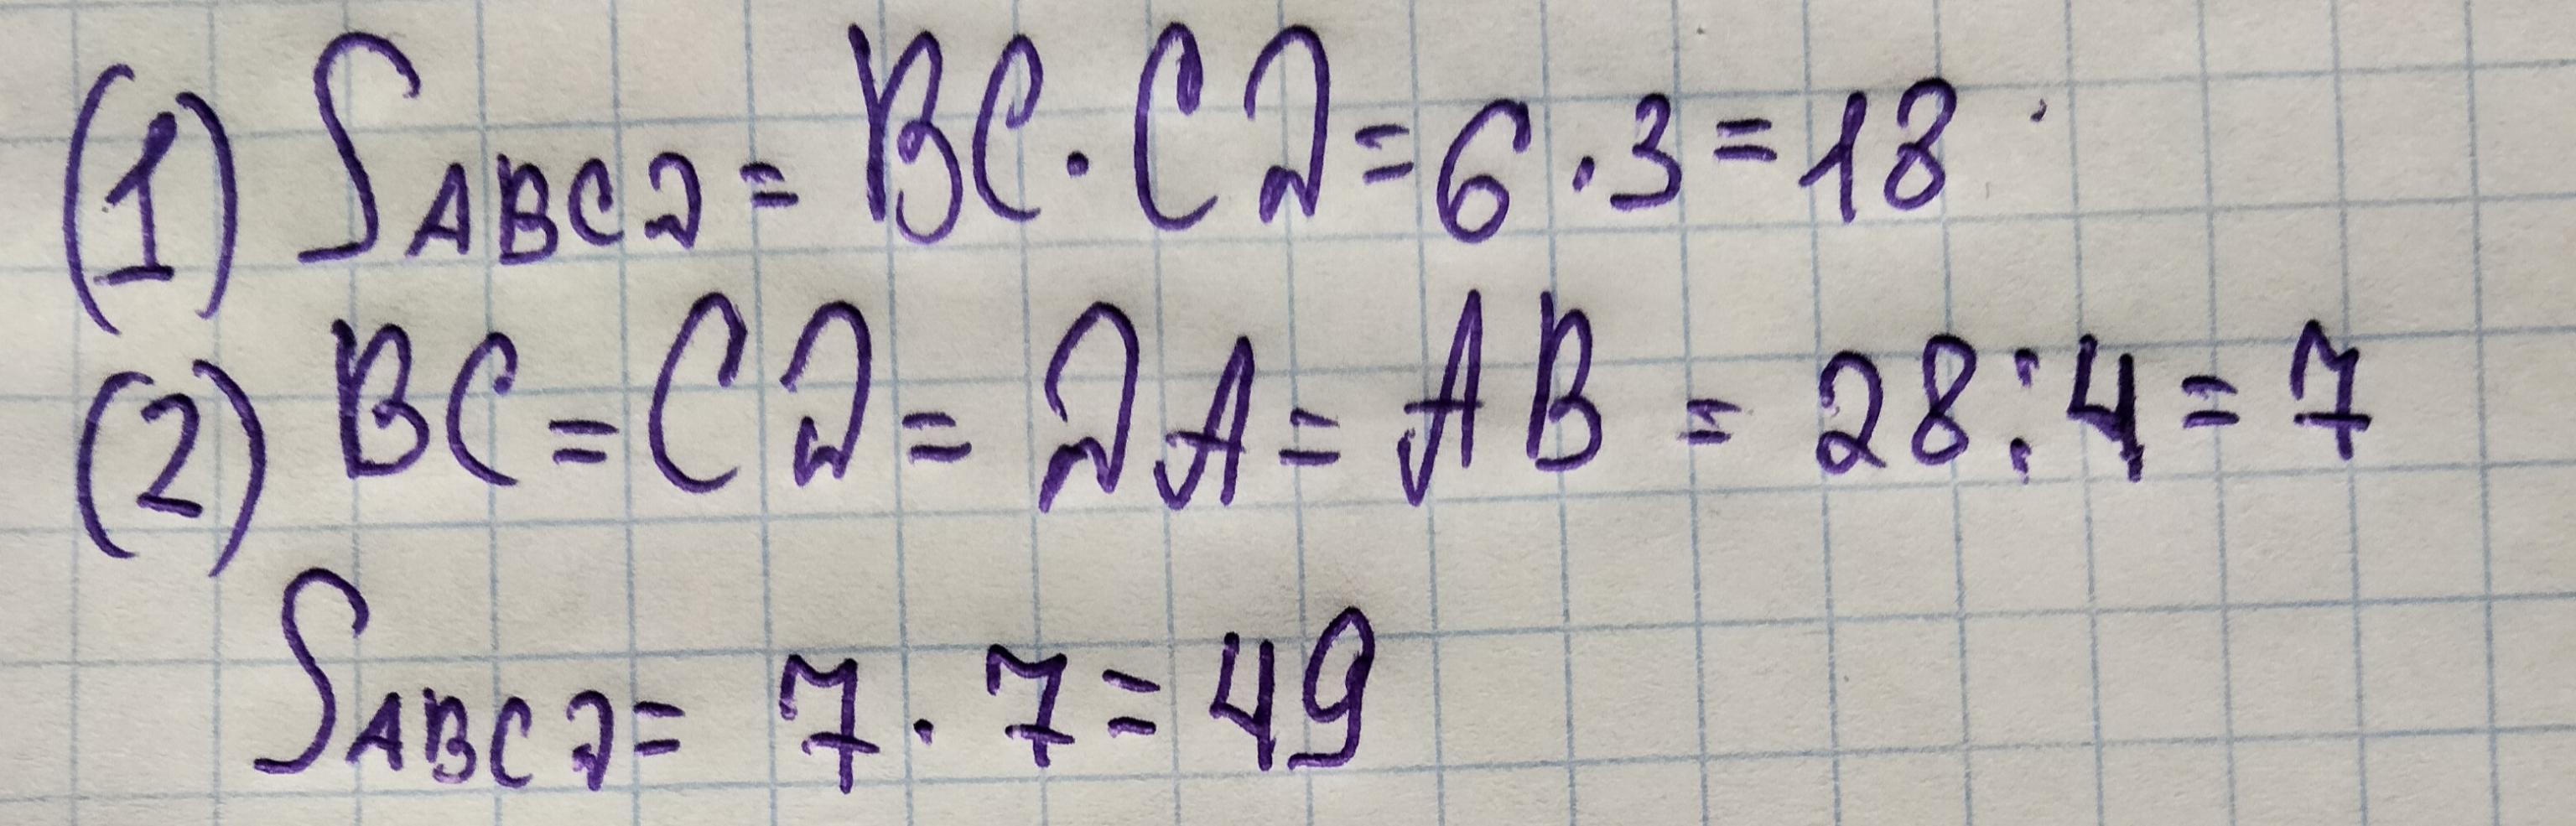 (1) S ABCD = BC · CD = 6 · 3 = 18
(2) BC = CD = DA = AB = 28 : 4 = 7
S ABCD = 7 · 7 = 49